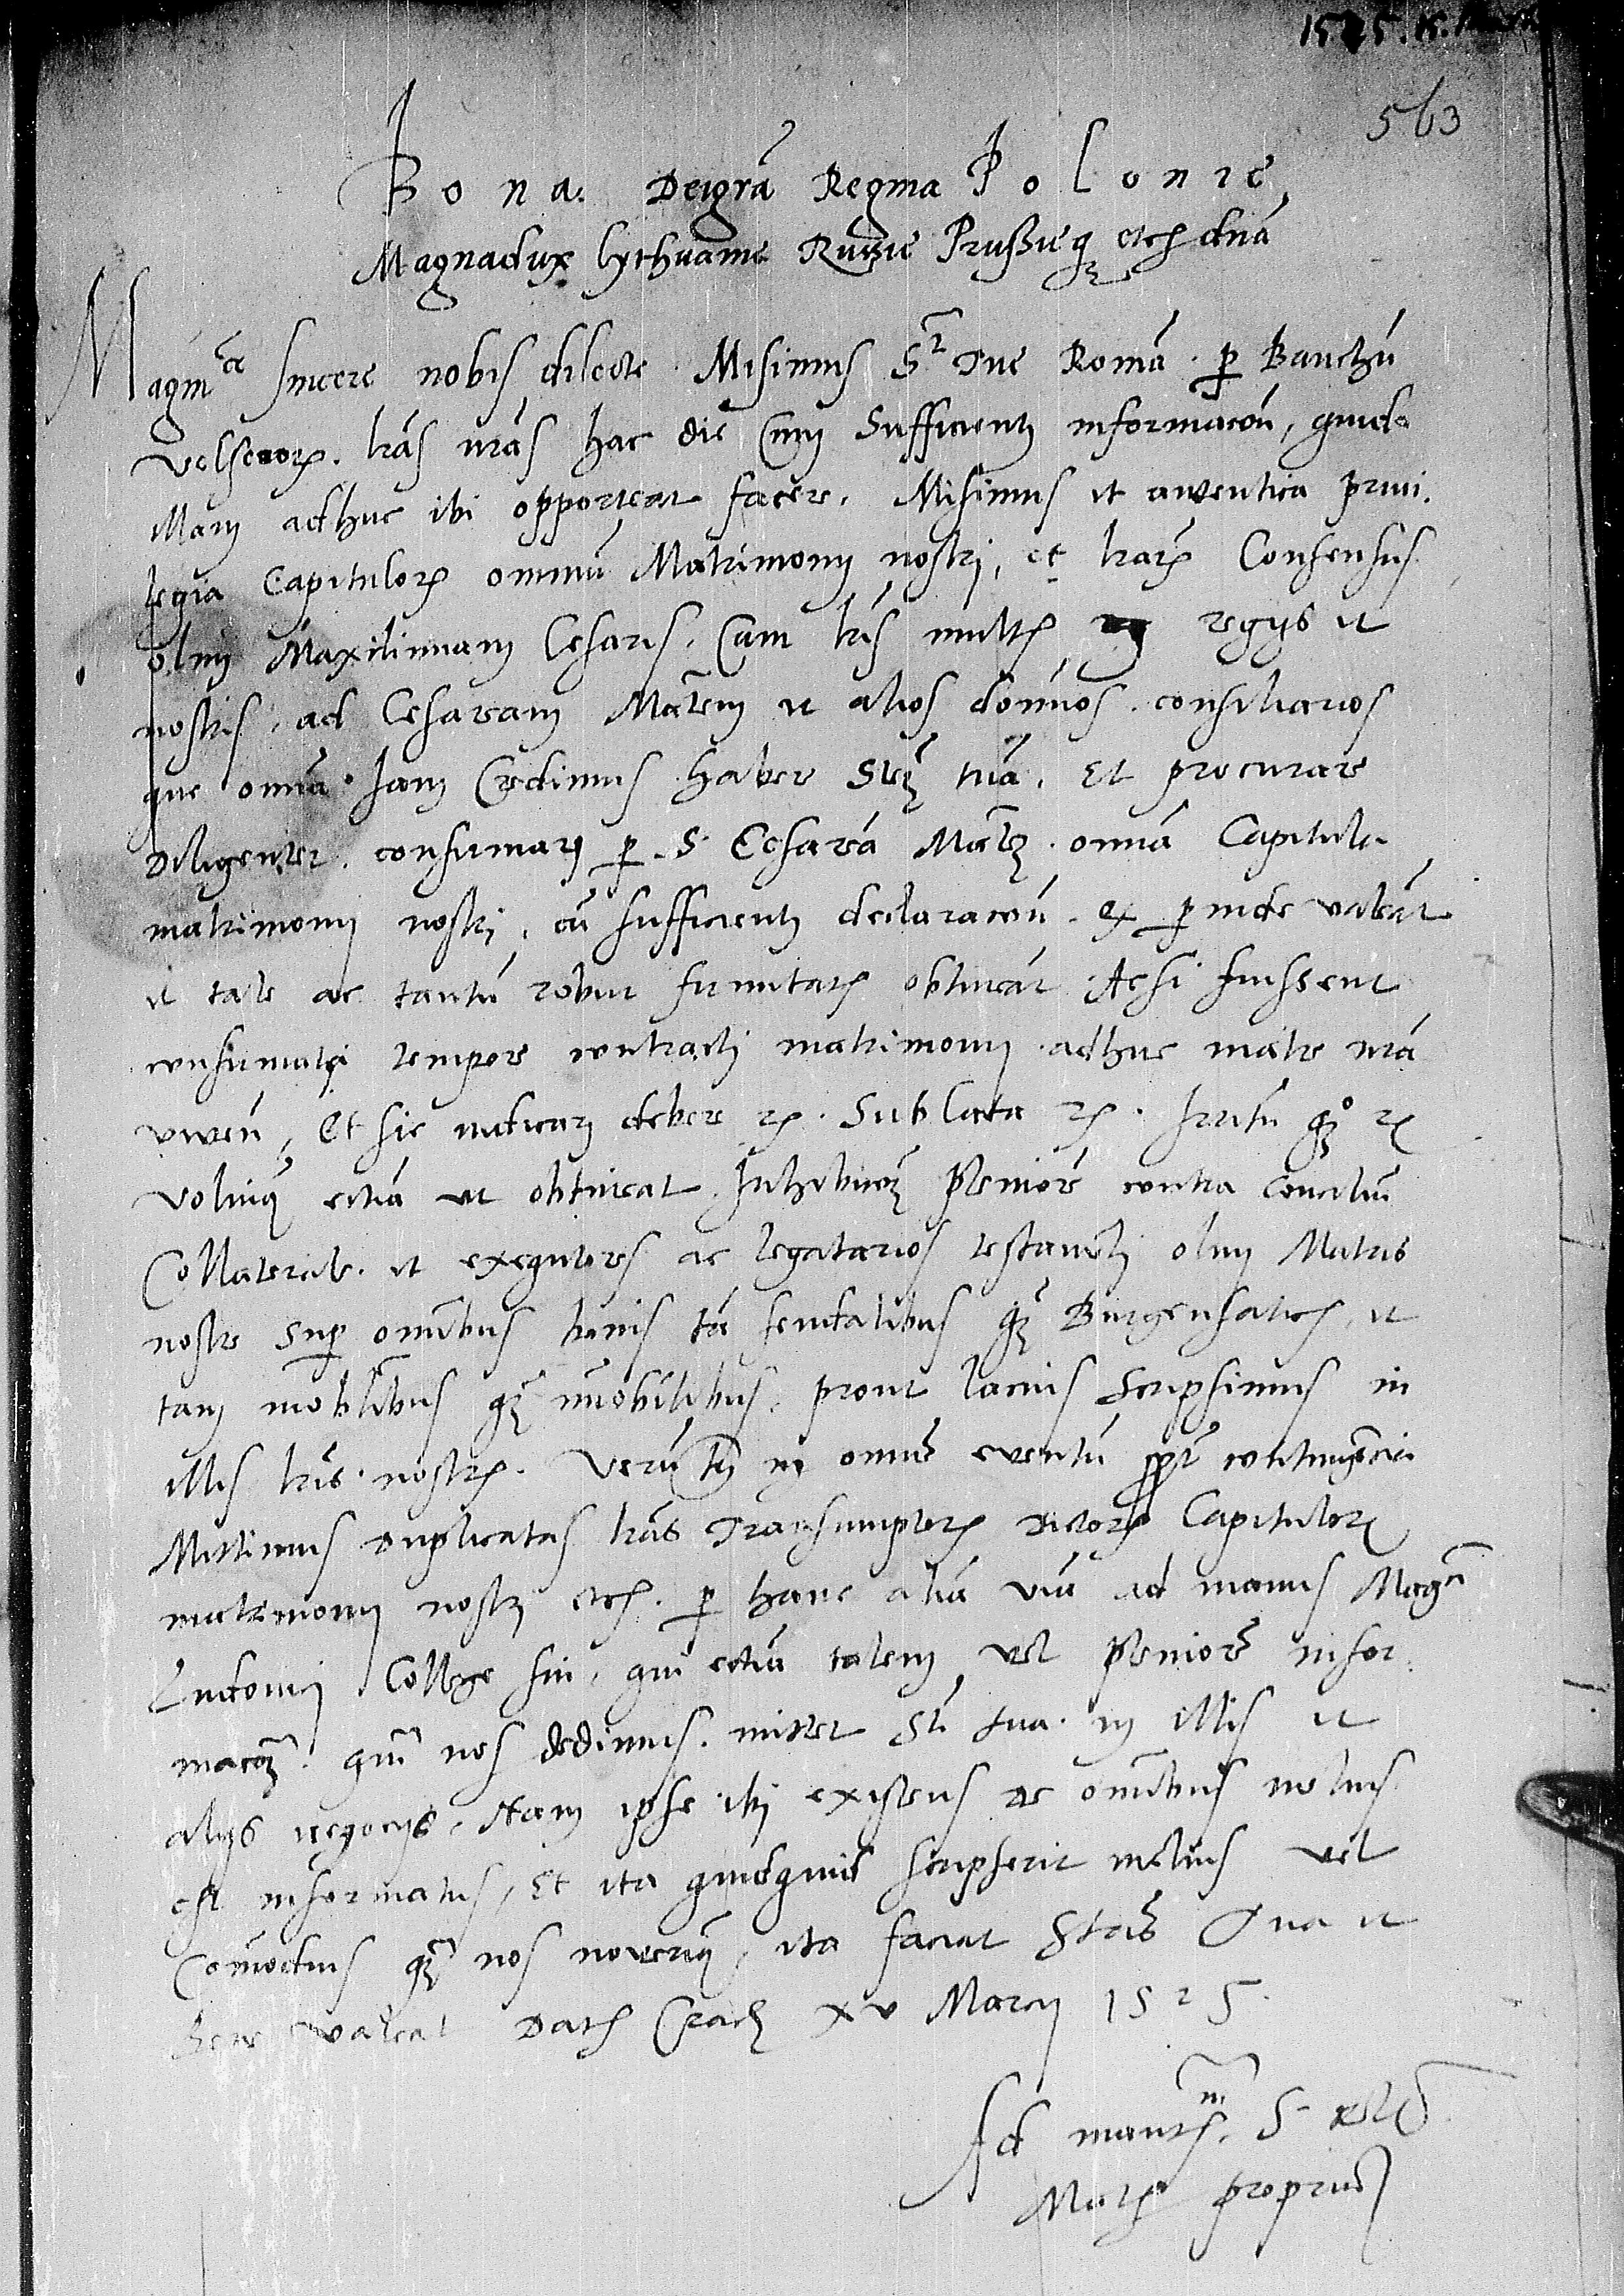 1525. 15.
563
Bona. Dei grã Regina Polonie
Magnadux lythuanie Russie Prussieq etc dnã
Magnice sincere nobis dilecte Misimus Sti Tue Romã per Banchũ
velserorz. lrãs nrãs hac die Cum Sufficienti informacõn, quid
Nam adhuc ibi opporteat facere. Misimus et autentica privi.
legia Capitulorz omniũ Matrimonij nostri, et lrarz Consensus
olim Maximiliani Cesaris, Cum lris multis regijs et
nostris, ad Cesaream Mãtem et alios dominos consiliarios
que omnia Iam Credimus habere Stem tuã. Et procurare
Diligenter. confirmari per S. Cesareã Mãtem omnia Capitula
matrimonij nostri, cũ sufficienti declaracõn. ex perinde valeãt
et tale ac tantũ robur firmitatis obtineãt Acsi fuissent
confirmata tempore contracti matrimonij adhuc mãtre nrã
viven, Et sic iudicari debere etc. Sublata etc. Irritũ qz etc
Volumus etiã ut obtineat Inhibicõem pleniorẽ contra Conciliũ
Collaterale. et exequtores ac legatarios testamẽti olim Matris
nostre Super omnibus bonis tã feudalibus qz Burgensaticis, et
tam mobilibus qz imobilibus, prout lacius scripsimus in
illis lris nostris. Verũtn in omnẽ eventũ contingẽcie
Mittimus duplicatas lrãs Transumptorz dictorz Capitulorz
matrimonij nostri etc. per hanc aliã viã ad manus Magci
Ludovici College sui, qui etiã talem vel pleniorẽ infor
macõem. qm nos dedimus. mittet Sti tua. in illis et
alijs negocijs, Nam ipse ibi existens de omnibus melius
est informatus, Et ita quidquid scripserit melius vel
Comodius qz nos noverim, ita faciat Stas Tua et
bene valeat Datz Crac XV Marcij 1525.
Ad mantm S. Rele
Matis propriũ